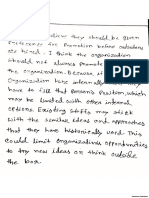 they should be given
preference for promotion before outsiders
are hired. I think the organization
should not always promote
the organization. Because, if
organization hire internally
have to fill that person's position, which
may be limited with other internal
options. Existing staffs may stick
with the similar ideas and approaches
that they have historically used. This
could limit organization's opportunities
to try new ideas or think outside
the box.